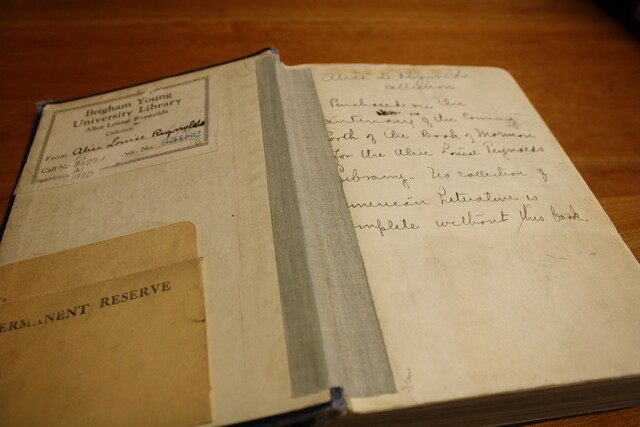 Brigham Young
University Library
Alice Louise Reynolds
Collection
From Alice Louise Reynolds
Call No.
Acc. No.
1930
PERMANENT RESERVE
Alice L. Reynolds
collection
Purchased on the
centenary of the coming
forth of the Book of Mormon
for the Alice Louise Reynolds
Library. No collection of
American Literature is
complete without this book.